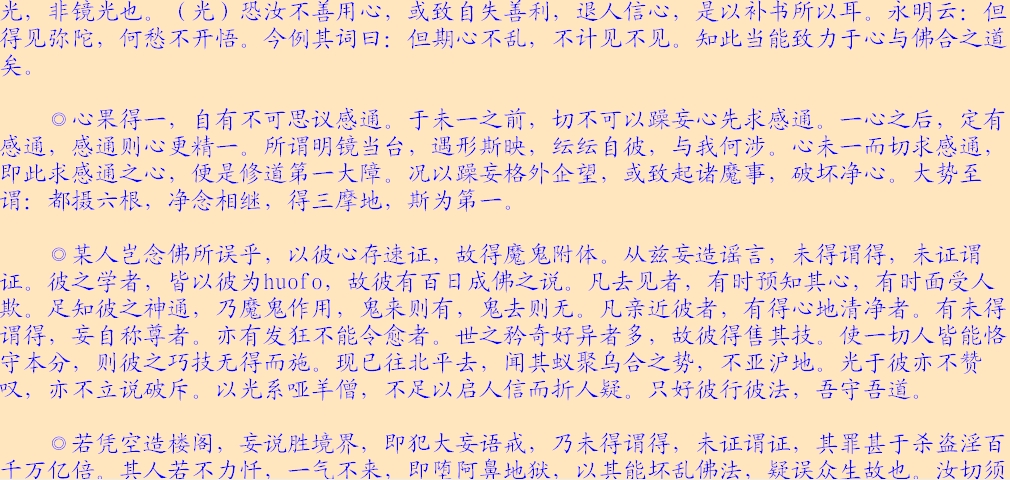 光，非镜光也。（光）恐汝不善用心，或致自失善利，退人信心，是以补书所以耳。永明云：但
得见弥陀，何愁不开悟。今例其词曰：但期心不乱，不计见不见。知此当能致力于心与佛合之道
矣。
◎心果得一，自有不可思议感通。于未一之前，切不可以躁妄心先求感通。一心之后，定有
感通，感通则心更精一。所谓明镜当台，遇形斯映，纭纭自彼，与我何涉。心未一而切求感通，
即此求感通之心，便是修道第一大障。况以躁妄格外企望，或致起诸魔事，破坏净心。大势至
谓：都摄六根，净念相继，得三摩地，斯为第一。
◎某人岂念佛所误乎，以彼心存速证，故得魔鬼附体。从兹妄造谣言，未得谓得，未证谓
证。彼之学者，皆以彼为huofo，故彼有百日成佛之说。凡去见者，有时预知其心，有时面受人
欺。足知彼之神通，乃魔鬼作用，鬼来则有，鬼去则无。凡亲近彼者，有得心地清净者。有未得
谓得，妄自称尊者。亦有发狂不能令愈者。世之矜奇好异者多，故彼得售其技。使一切人皆能恪
守本分，则彼之巧技无得而施。现已往北平去，闻其蚁聚乌合之势，不亚沪地。光于彼亦不赞
叹，亦不立说破斥。以光系哑羊僧，不足以启人信而折人疑。只好彼行彼法，吾守吾道。
◎若凭空造楼阁，妄说胜境界，即犯大妄语戒，乃未得谓得，未证谓证，其罪甚于杀盗淫百
千万亿倍。其人若不力忏，一气不来，即堕阿鼻地狱，以其能坏乱佛法，疑误众生故也。汝切须